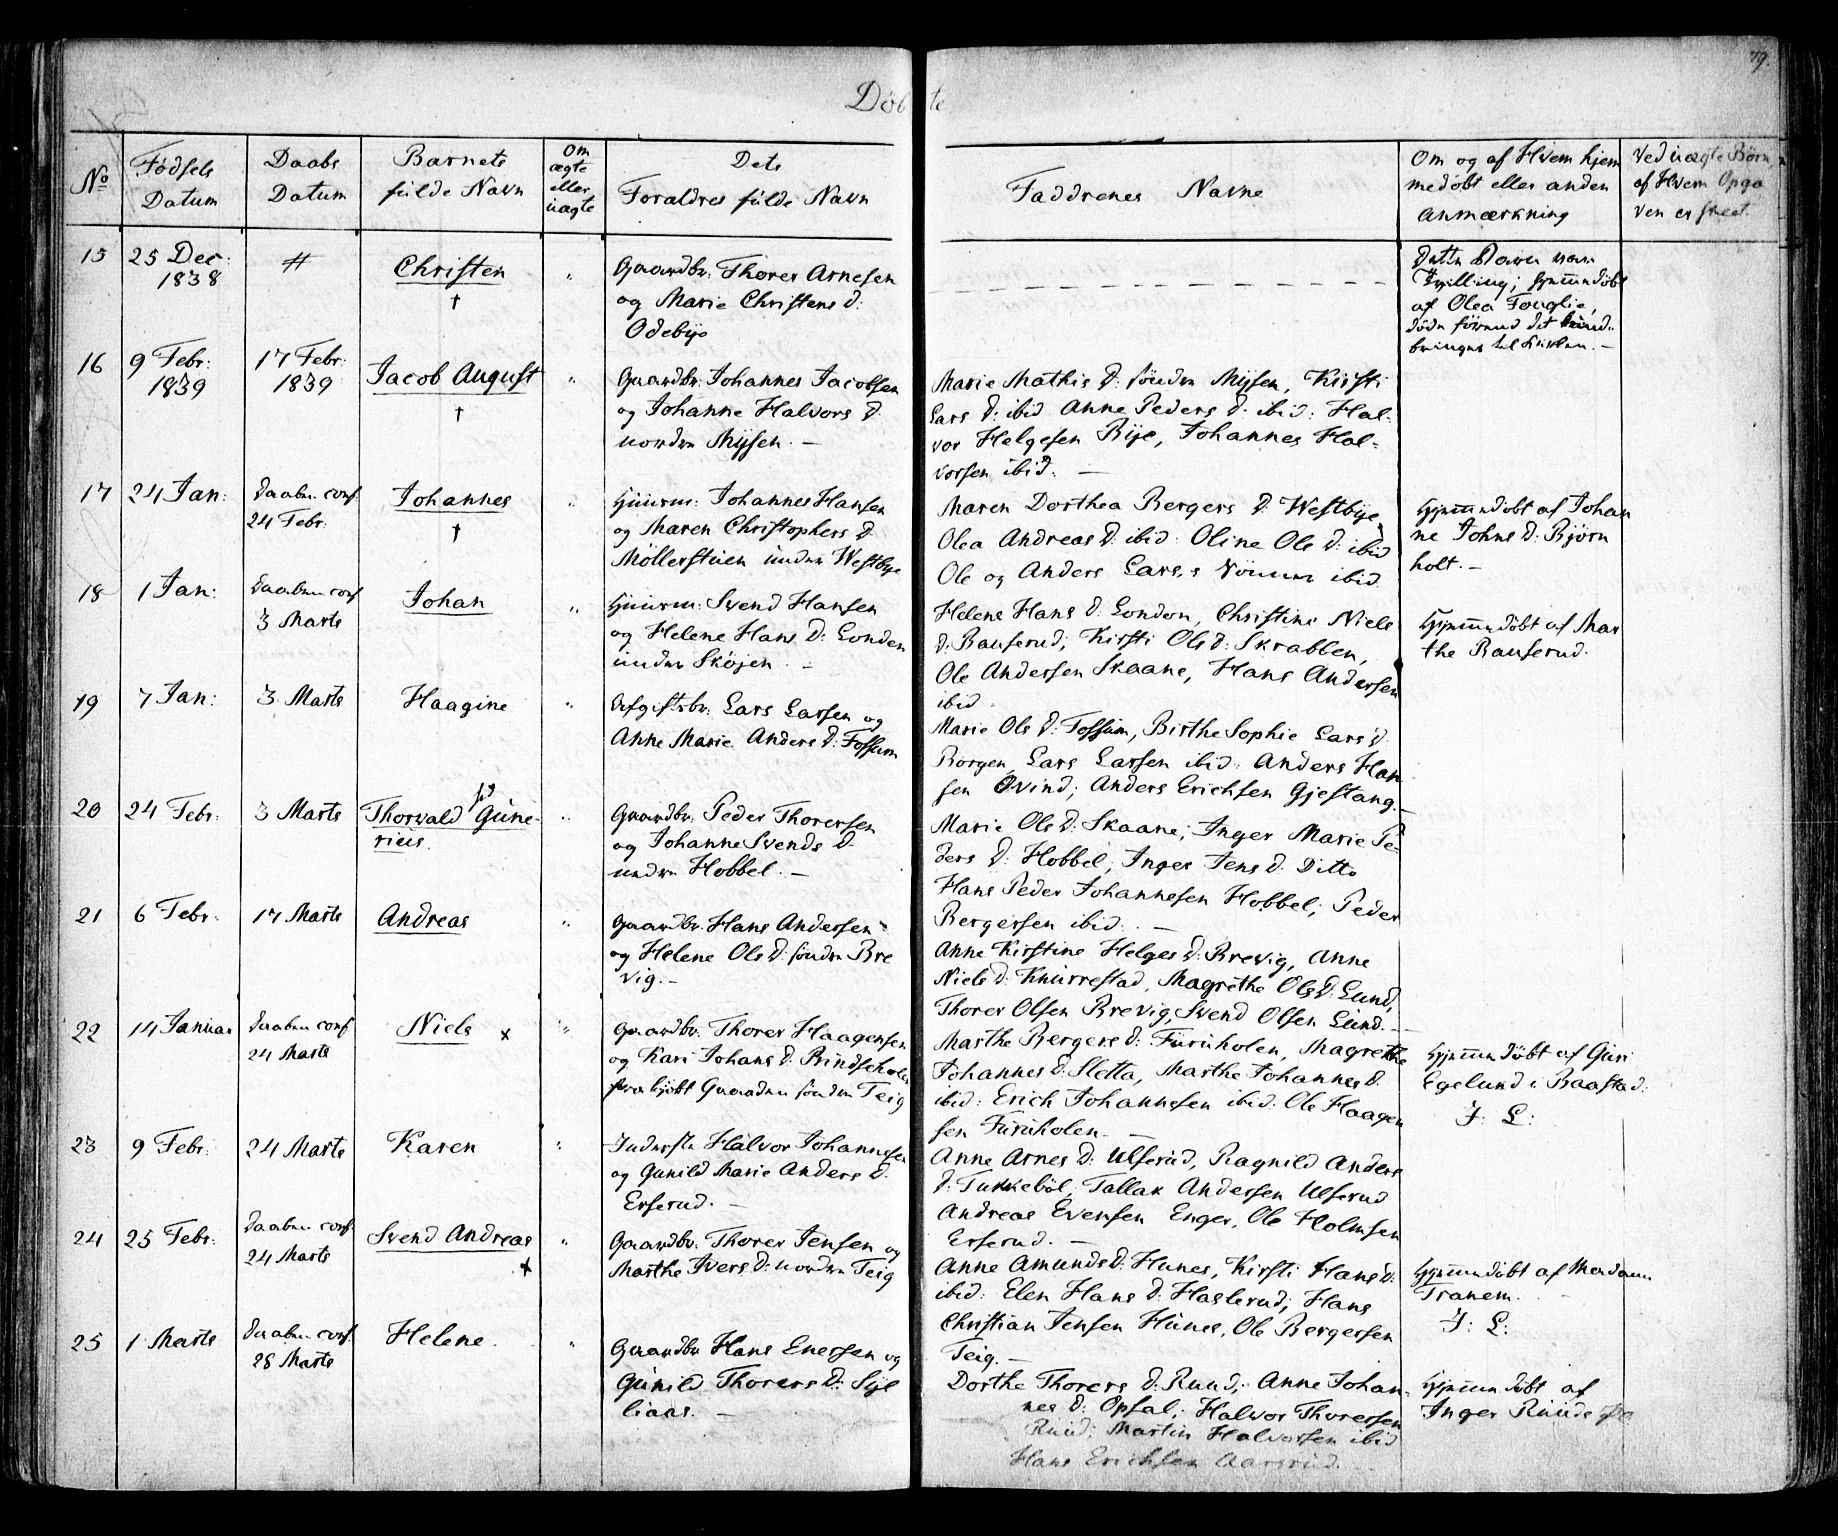 79.
Döbte
No
Födsels Datum
Daabs Datum
Barnets fulde Navn
Om ægte eller uægte
Dets Foraldres fulde Navn
Faddrenes Navne
Om og af Hvem hjemmedöbt eller anden Anmærkning
Ved uægte Börn af Hvem Opgaven er skeet.
15 25 Dec: 1838 # Christen † "
Gaardbr: Thorer Arnesen
og Marie Christens D:
Odebye
Dette Barn var
Tvilling; hjemmedöbt
af Olea Fouglie,
döde förend det kunde
bringes til Kirken. -
16 9 Febr: 1839 17 Febr: 1839 Jacob August † "
Gaardbr: Johannes Jacobsen
og Johanne Halvors D:
nordre Mysen. -
Marie Mathis D: söndre Mysen, Kirsti
Lars D: ibid Anne Peders D: ibid: Hal-
vor Helgesen Bye, Johannes Hal-
vorsen ibid. -
17 24 Jan: Daaben conf. 24 Febr: Johannes † "
Huusm: Johannes Hansen
og Maren Christophers D.
Möllerstuen under Westbye
Maren Dorthea Bergers D: Westbye,
Olea Andreas D: ibid: Oline Ols D: ibid
Ole og Anders Lars. s Sönner ibid.
Hjemmedöbt af Johan
ne Johns D: Björn
holt. -
18 1 Jan: Daaben conf 3 Marts Johan "
Huusm: Svend Hansen
og Helene Hans D: London
under Sköjen. -
Helene Hans D: London, Christine Niels
D: Bauserud, Kirsti Ols D: Skrabben,
Ole Andersen Skaane, Hans Andersen
ibid
Hjemmedöbt af Mar
the Bauserud.
19 7 Jan: 3 Marts Haagine "
Afgiftsbr: Lars Larsen og
Anne Marie Anders D: Fossum
Marie Ols D: Fossum, Birthe Sophie Lars D
Borgen, Lars Larsen ibid: Anders Han
sen Övind; Anders Erichsen Gjestang. -
20 24 Febr: 3 Marts Thorvald Gune-
rius. "
Gaardbr: Peder Thorersen
og Johanne Svends D.
undre Hobbel. -
Marie Ols D: Skaane; Inger Marie Pe-
ders D: Hobbel; Inger Jens D. Ditto
Hans Peder Johannesen Hobbel; Peder
Bergersen ibid. -
21 6 Febr: 17 Marts Andreas "
Gaardbr: Hans Andersen
og Helene Ols D: söndre Bre
vig. -
Anne Kirstine Helges D: Brevig, Anne
Niels D: Knurrestad, Magrethe Ols D: Lund,
Thorer Olsen Brevig, Svend Olsen Lund. -
22 14 Januar Daaben conf 24 Marts Niels x "
Gaardbr: Thorer Haagensen
og Kari Johans D: Rindsholen
fra kjöbt Gaarden söndre Teig
Marthe Bergers D: Furuholen, Magrethe
Johannes D: Sletta, Marthe Johannes D.
ibid: Erich Johannesen ibid: Ole Haagen
sen Furuholen. -
Hjemmedöbt af Guri
Egelund i Baastad:
J: L:
23 9 Febr: 24 Marts Karen "
Inderste Halvor Johannesen
og Gunild Marie Anders D.
Erserud. -
Anne Arnes D: Ulserud, Ragnild Anders
D: Tukkeböl, Tallak Andersen Ulserud
Andreas Evensen Enger, Ole Holmsen
Erserud. -
24 25 Febr: Daaben conf 24 Marts Svend Andreas x "
Gaardbr: Thorer Jensen og
Marthe Ivers D: nordre Teig
Anne Amunds D: Hunes, Kirsti Hans D:
ibid: Elen Hans D: Haslerud; Hans
Christian Jensen Hunes, Ole Bergersen
Teig. -
Hjemmedöbt af Madam
Tranem.
J: L:
25 1 Marts Daaben conf. 28 Marts Helene. "
Gaardbr Hans Enersen og
Gunild Thorers D: Syl
liaas. -
Dorthe Thorers D: Ruud; Anne Johan-
nes D: Opsal; Halvor Thorersen
Ruud; Martin Halvorsen ibid
Hans Erichsen Aarsrud. -
Hjemmedöbt af
Inger Ruuds